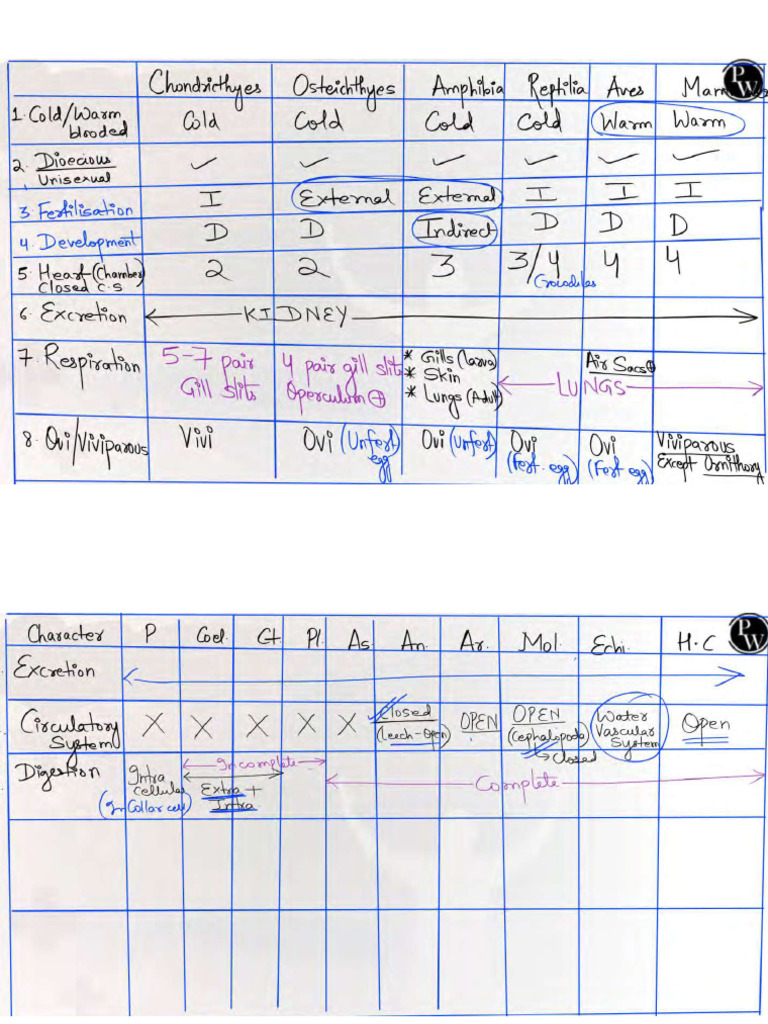 Chondricthyes Osteichthyes Amphibia Reptilia Aves Mam
PW
1. Cold/Warm blooded Cold Cold Cold Cold Warm Warm
2. Dioecious Unisexual ✓ ✓ ✓ ✓ ✓ ✓
3. Fertilisation I External External I I I
4. Development D D Indirect D D D
5. Heart (Chamber) Closed C.S 2 2 3 3/4 Crocodiles 4 4
6. Excretion KIDNEY
7. Respiration 5-7 pair Gill slits 4 pair gill slits Operculum ⊕ * Gills (larva) * Skin * Lungs (Adult) Air Sacs ⊕ LUNGS
8. Ovi/Viviparous Vivi Ovi (Unfert egg) Ovi (Unfert) Ovi (Fert. egg) Ovi (Fert egg) Viviparous Except Ornithory
Character P Coel. Ct. Pl. As. An. Ar. Mol. Echi. H.C
PW
Excretion
Circulatory System X X X X X Closed (Leech-Open) OPEN OPEN (cephalopoda) → closed Water Vascular System Open
Digestion Intra cellular (In Collar cell) Incomplete Extra + Intra Complete